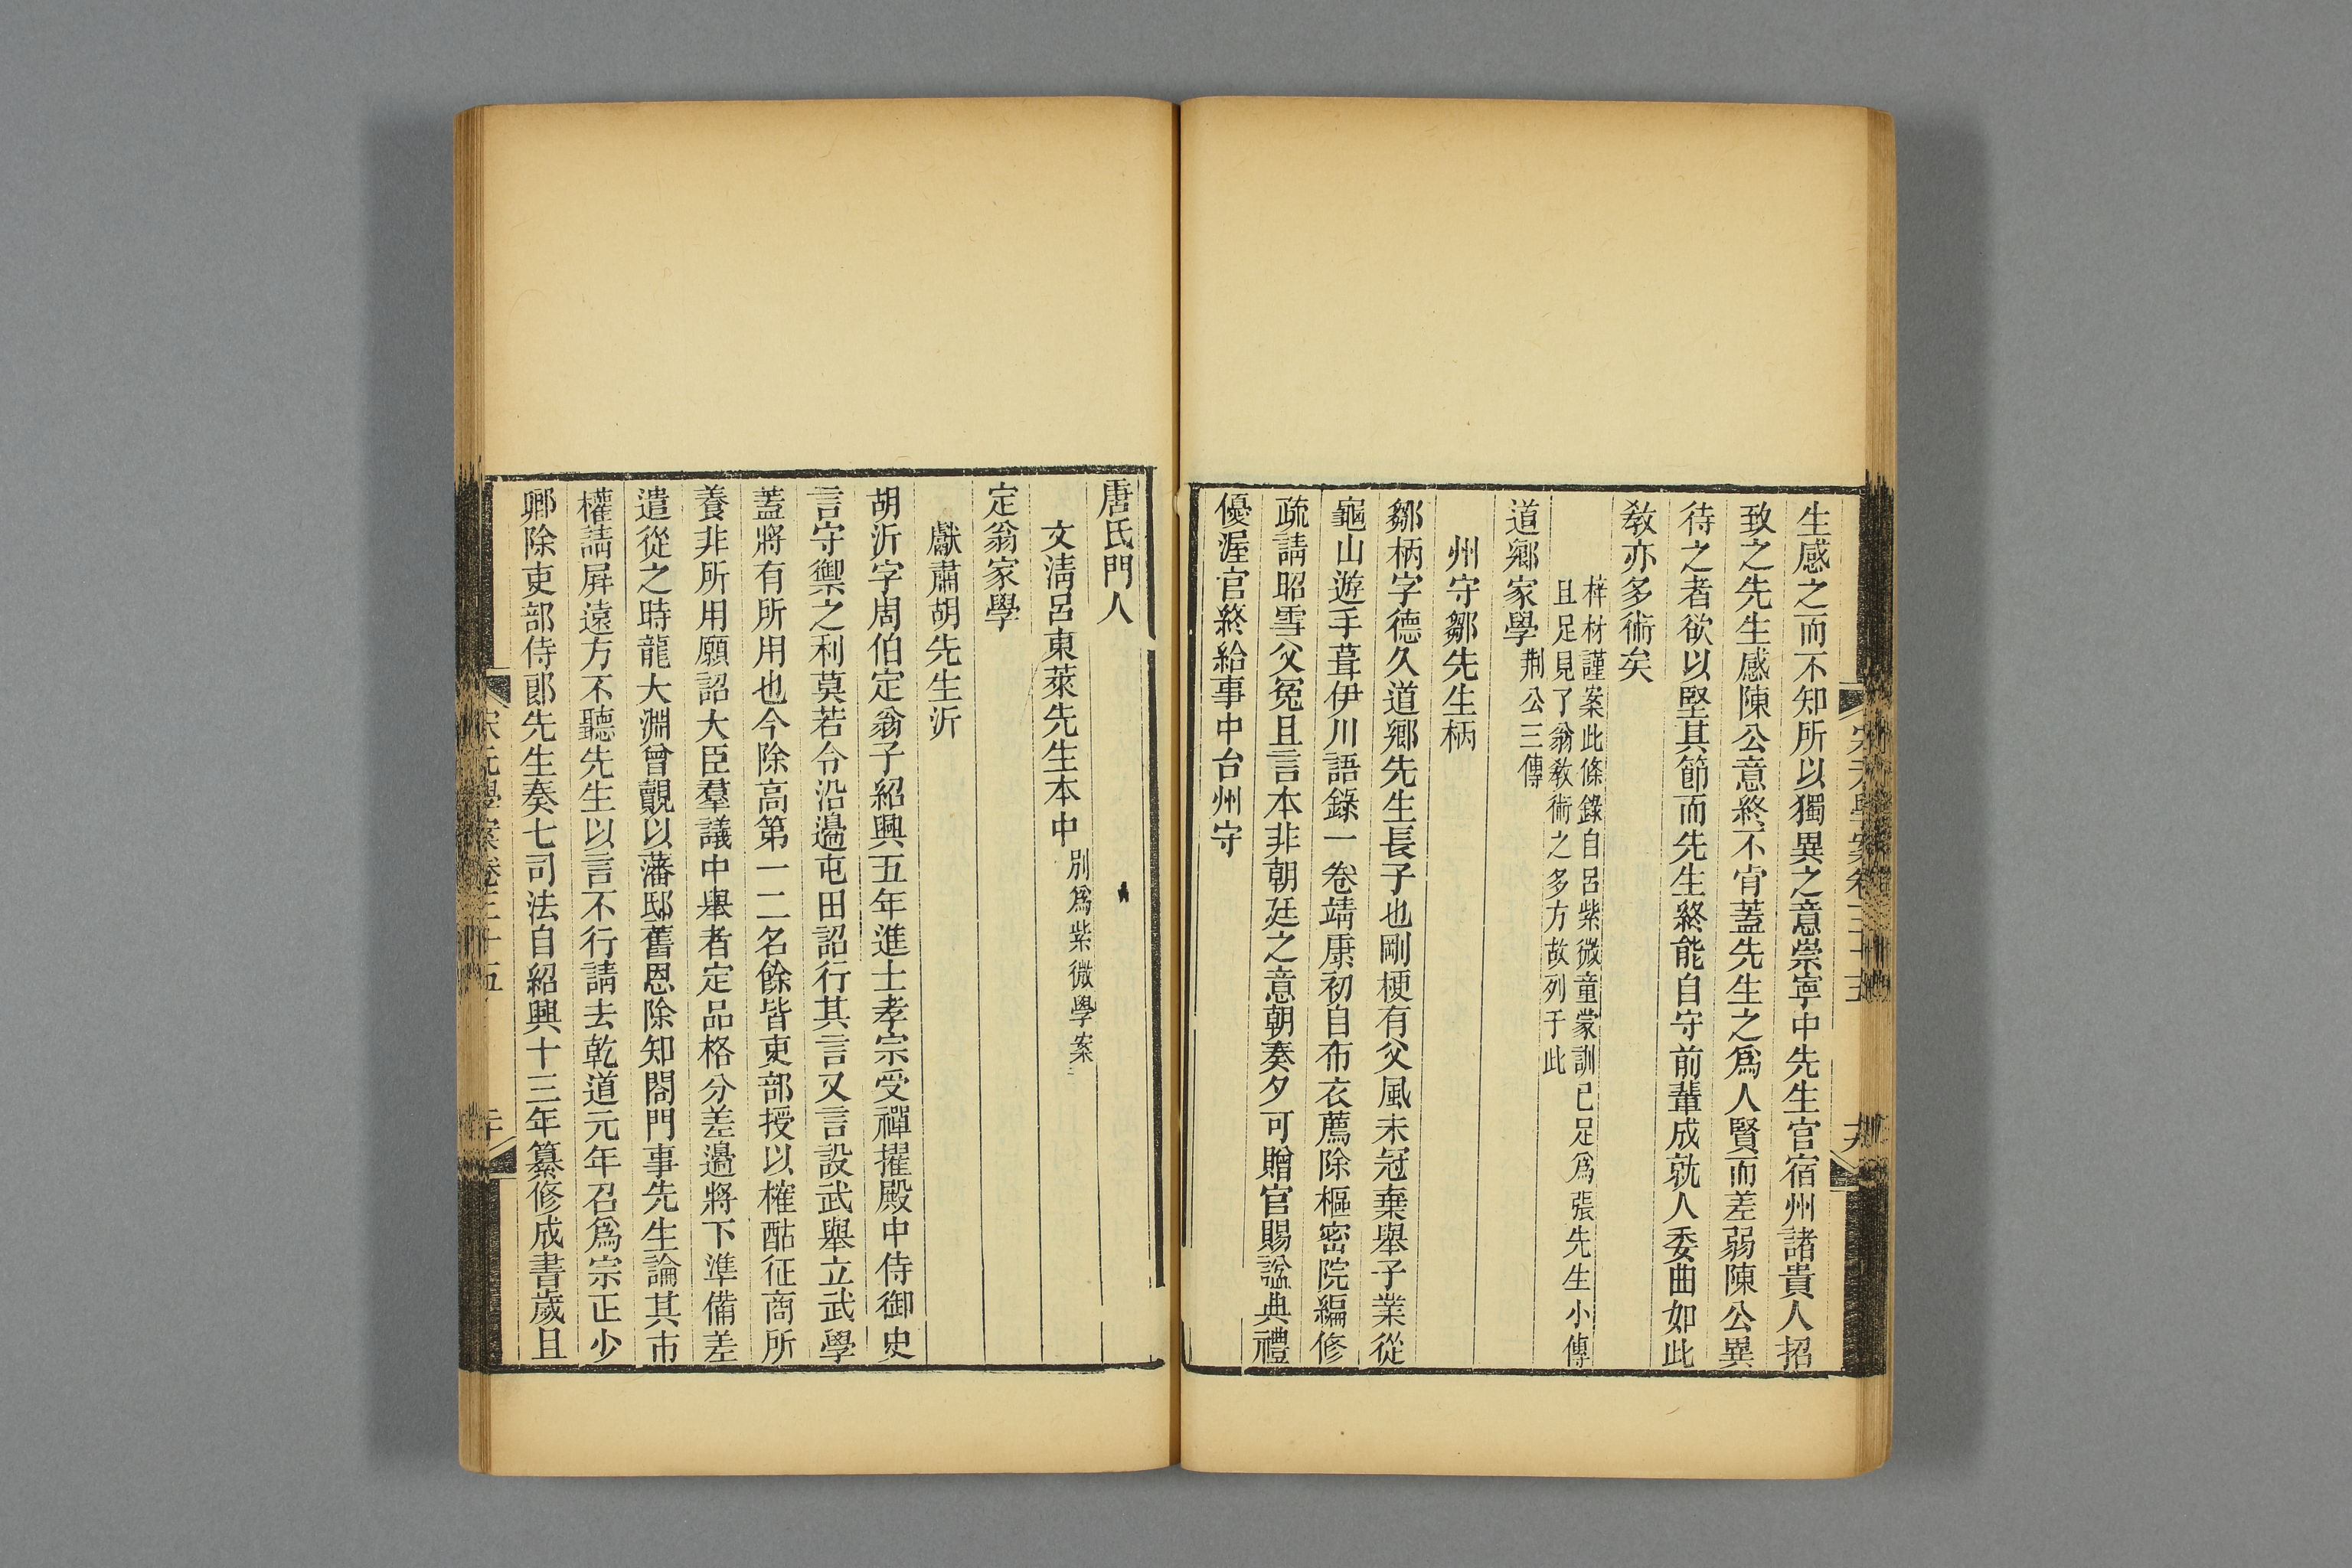 生感之而不知所以獨異之意崇寧中先生官宿州諸貴人招
致之先生感陳公意終不肯蓋先生之爲人賢而差弱陳公異
待之者欲以堅其節而先生終能自守前輩成就人委曲如此
敎亦多術矣
梓材謹案此條錄自呂紫微童蒙訓已足爲張先生小傳
且足見了翁敎術之多方故列于此
道鄉家學荆公三傳
州守鄒先生柄
鄒柄字德久道鄉先生長子也剛梗有父風未冠棄舉子業從
龜山遊手葺伊川語錄一卷靖康初自布衣薦除樞密院編修
疏請昭雪父冤且言本非朝廷之意朝奏夕可贈官賜諡典禮
優渥官終給事中台州守
唐氏門人
文淸呂東萊先生本中別爲紫微學案
定翁家學
獻肅胡先生沂
胡沂字周伯定翁子紹興五年進士孝宗受禪擢殿中侍御史
言守禦之利莫若令沿邊屯田詔行其言又言設武舉立武學
蓋將有所用也今除高第一二名餘皆吏部授以榷酤征商所
養非所用願詔大臣羣議中舉者定品格分差邊將下準備差
遣從之時龍大淵曾觀以藩邸舊恩除知閤門事先生論其市
權請屛遠方不聽先生以言不行請去乾道元年召爲宗正少
卿除吏部侍郎先生奏七司法自紹興十三年纂修成書歲且
宋元學案卷三十五